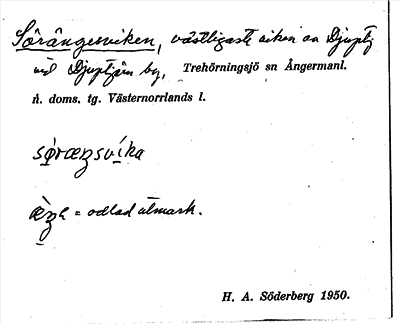 Sörängesviken, västligaste viken av Djuptj.
vid Djuptjärn by, Trehörningsjö sn Ångermanl.
n. doms. tg. Västernorrlands l.
söræŋsvíka
æŋe = odlad utmark.
H. A. Söderberg 1950.